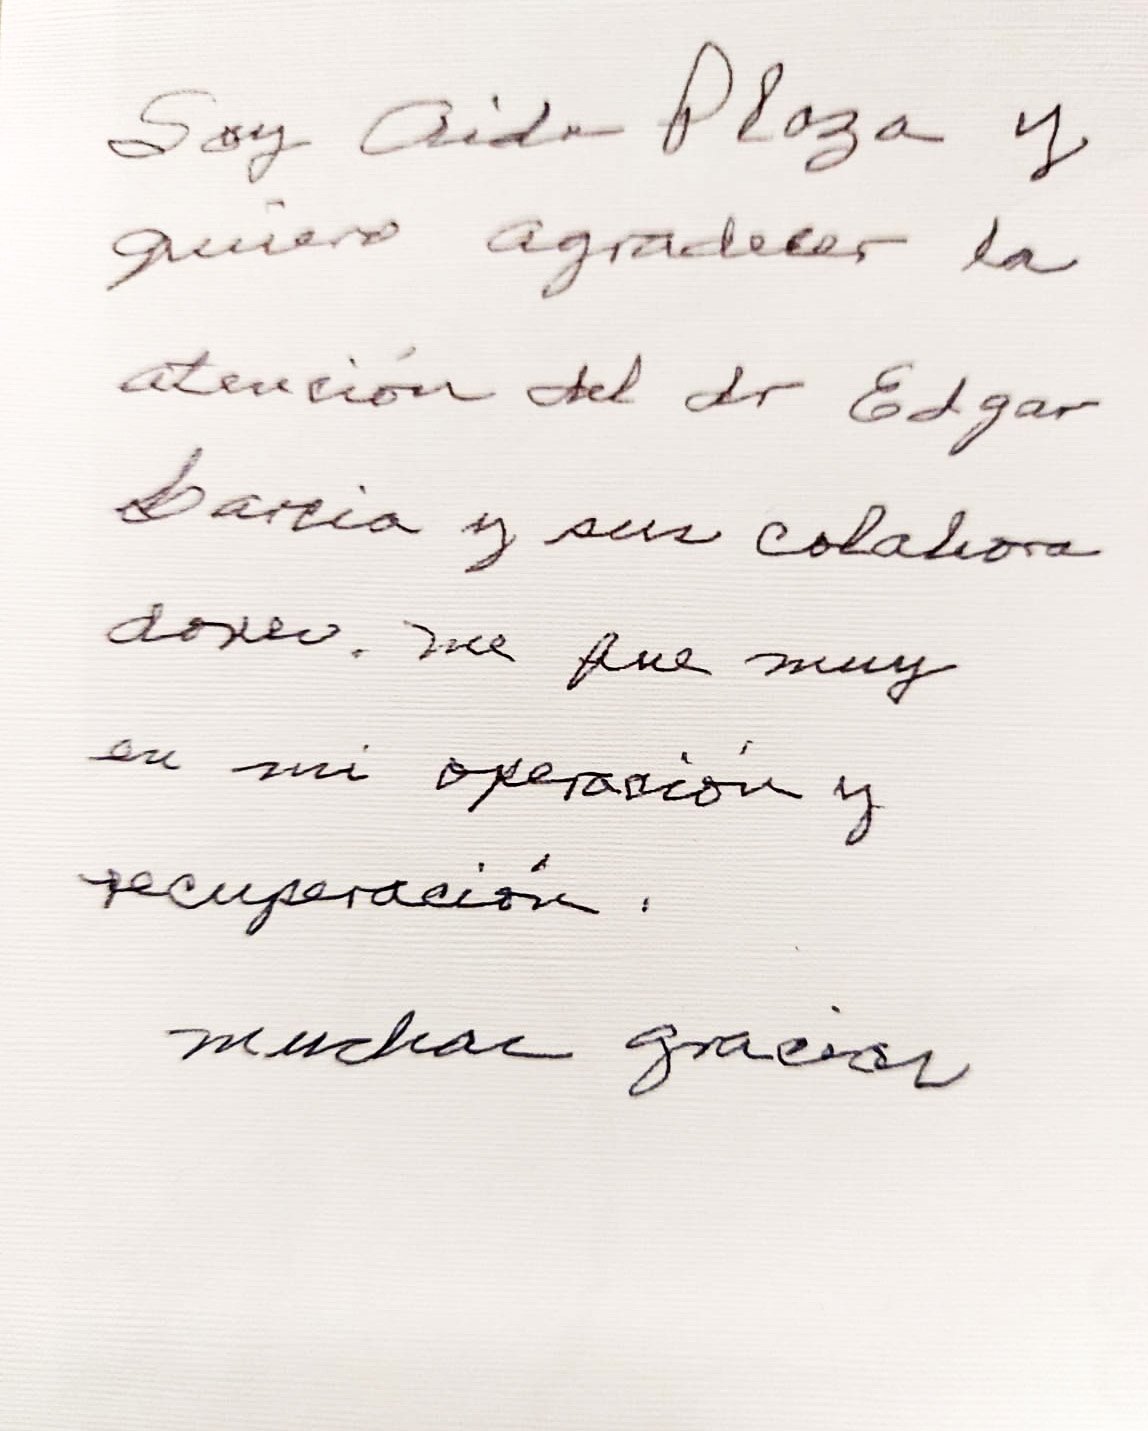 Soy Aida Plaza y
quiero agradecer la
atención del dr Edgar
Garcia y sus colabora
dores. me fue muy
en mi operación y
recuperación.
muchas gracias